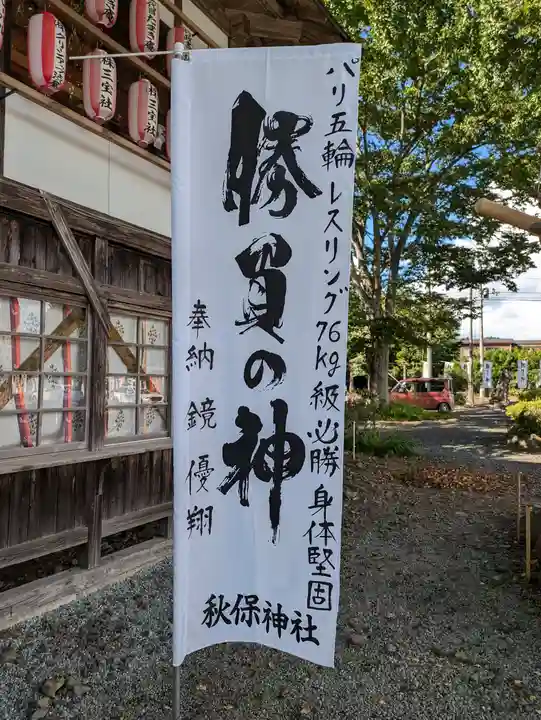 パリ五輪 レスリング76kg級必勝 身体堅固
勝負の神
奉納 鏡優翔
秋保神社
三宝社